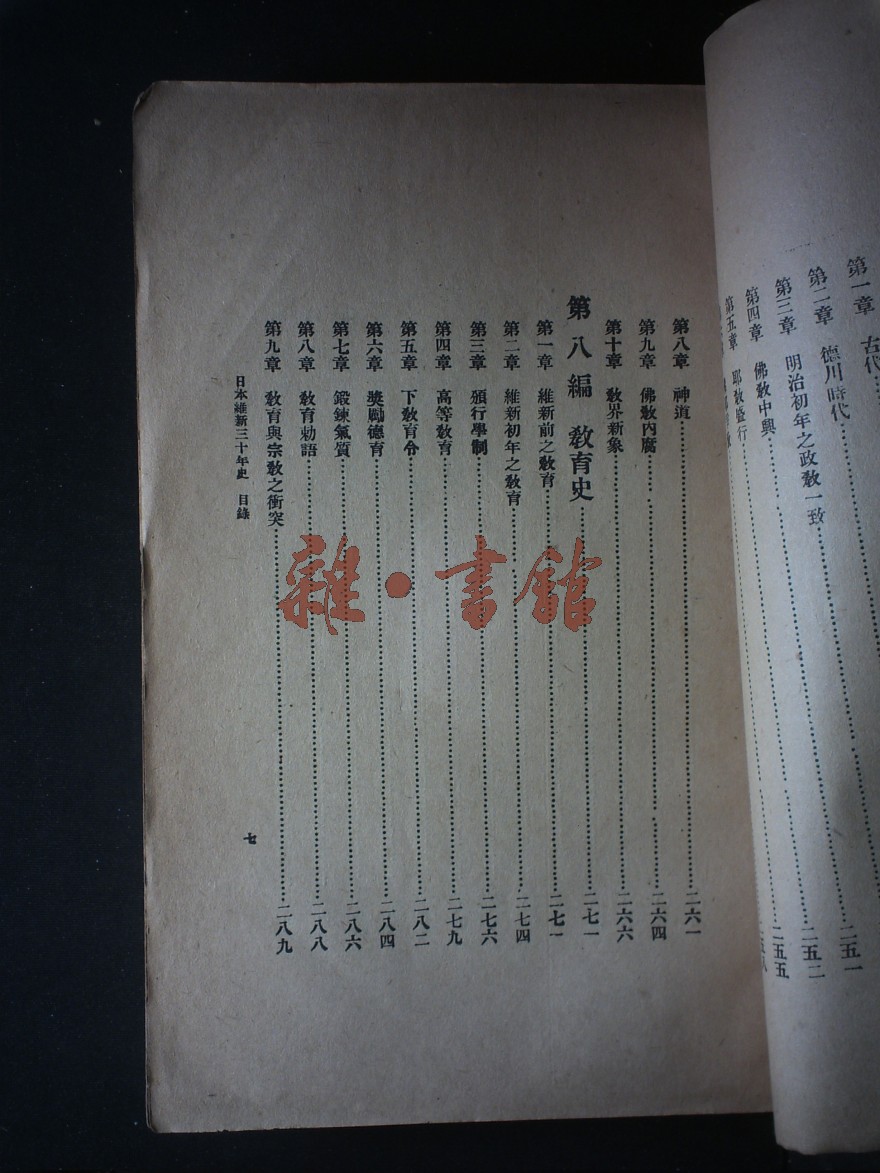 第一章 古代 二五一
第二章 德川時代 二五二
第三章 明治初年之政敎一致 二五五
第四章 佛敎中興
第五章 耶敎盛行
第八章 神道 二六一
第九章 佛敎內腐 二六四
第十章 敎界新象 二六六
第八編 敎育史 二七一
第一章 維新前之敎育 二七一
第二章 維新初年之敎育 二七四
第三章 頒行學制 二七六
第四章 高等敎育 二七九
第五章 下敎育令 二八二
第六章 奬勵德育 二八四
第七章 鍛鍊氣質 二八六
第八章 敎育勅語 二八八
第九章 敎育與宗敎之衝突 二八九
日本維新三十年史 目錄 七
雜·書館